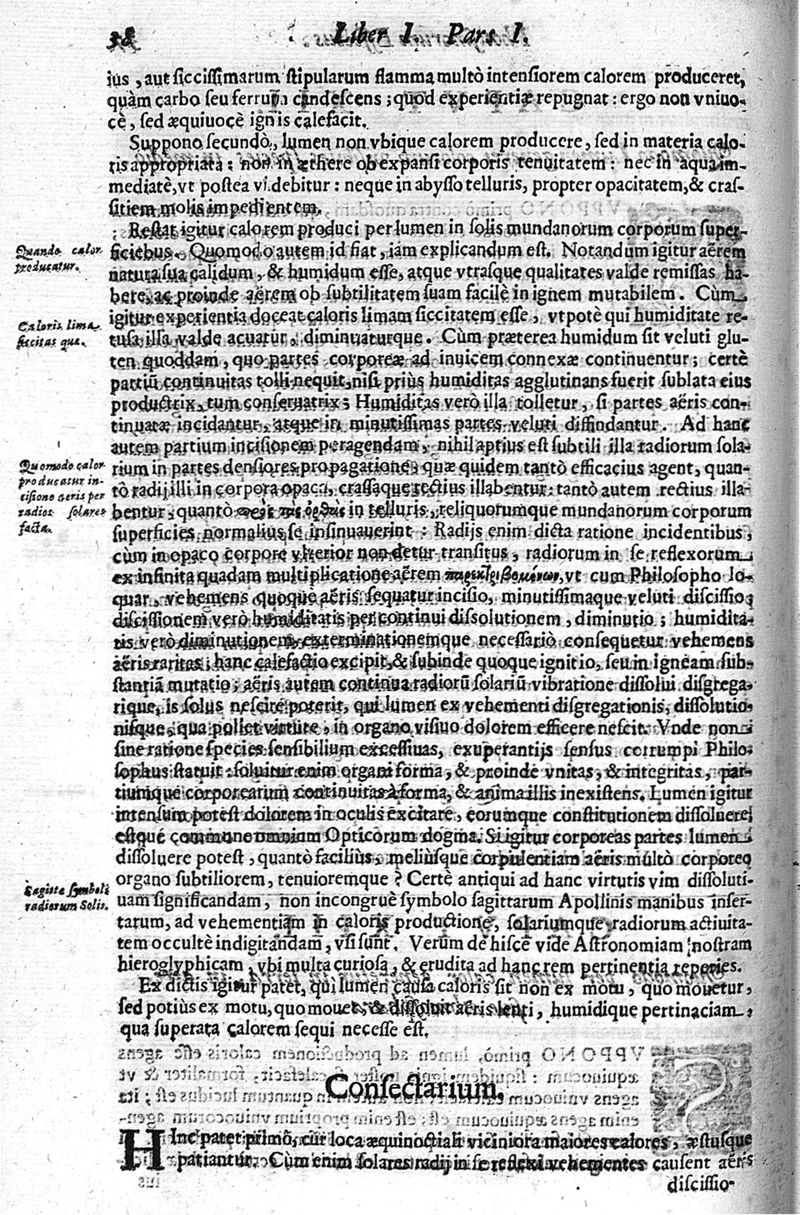 38 Liber I. Pars I.
ius, aut siccissimarum stipularum flamma multò intensiorem calorem produceret,
quàm carbo seu ferrum candescens; quod experientiæ repugnat: ergo non vniuo-
cè, sed æquiuocè ignis calefacit.
Suppono secundò, lumen non vbique calorem producere, sed in materia calo-
ris appropriata: non in æthere ob expansi corporis tenuitatem: nec in aqua im-
mediatè, vt postea videbitur: neque in abysso telluris, propter opacitatem, & cras-
sitiem molis impedientem.
Quando calor
producatur.
Restat igitur calorem produci per lumen in solis mundanorum corporum super-
ficiebus. Quomodo autem id fiat, iam explicandum est. Notandum igitur aërem
natura sua calidum, & humidum esse, atque vtrasque qualitates valde remissas ha-
bere, ac proinde aërem ob subtilitatem suam facilè in ignem mutabilem. Cùm
Caloris lima
siccitas quæ.
igitur experientia doceat caloris limam siccitatem esse, vtpotè qui humiditate re-
tusa illa valde acuatur, diminuaturque. Cùm præterea humidum sit veluti glu-
ten quoddam, quo partes corporeæ ad inuicem connexæ continuentur; certè
partiũ continuitas tolli nequit, nisi priùs humiditas agglutinans fuerit sublata eius
productrix, tum conseruatrix; Humiditas verò illa tolletur, si partes aëris con-
tinuatæ incidantur, atque in minutissimas partes veluti diffindantur. Ad hanc
autem partium incisionem peragendam, nihil aptius est subtili illa radiorum sola-
Quomodo calor
producatur in-
cisione aeris per
radios solares
facta.
rium in partes densiores propagatione; quæ quidem tantò efficacius agent, quan-
tò radij illi in corpora opaca, crassaque rectius illabentur: tantò autem rectius illa-
bentur, quantò in telluris, reliquorumque mundanorum corporum
superficies normalius se insinuauerint: Radijs enim dicta ratione incidentibus,
cùm in opaco corpore vlterior non detur transitus, radiorum in se reflexorum
ex infinita quadam multiplicatione aërem vt cum Philosopho lo-
quar, vehemens quoque aëris sequatur incisio, minutissimaque veluti discissio;
discissionem verò humiditatis per continui dissolutionem, diminutio; humidita-
tis verò diminutionem exterminationemque necessariò consequetur vehemens
aëris raritas; hanc calefactio excipit, & subinde quoque ignitio, seu in igneam sub-
stantiã mutatio; aëris autem continua radiorũ solariũ vibratione dissolui disgrega-
rique, is solus nescire poterit, qui lumen ex vehementi disgregationis, dissolutio-
nisque, qua pollet virtute, in organo visiuo dolorem efficere nescit. Vnde non
sine ratione species sensibilium excessiuas, exuperantijs sensus corrumpi Philo-
sophus statuit: soluitur enim organi forma, & proinde vnitas, & integritas, par-
tiumque corporearum continuitas à forma, & anima illis inexistens. Lumen igitur
intensum potest dolorem in oculis excitare, eorumque constitutionem dissoluere
estque commune omnium Opticorum dogma. Si igitur corporeas partes lumen
dissoluere potest, quantò facilius, meliusque corpulentiam aëris multò corporeo
organo subtiliorem, tenuioremque? Certè antiqui ad hanc virtutis vim dissoluti-
Sagittæ symboli
radiorum Solis.
uam significandam, non incongruè symbolo sagittarum Apollinis manibus inser-
tarum, ad vehementiam in caloris productione, solariumque radiorum actiuita-
tem occultè indigitandam, vsi sunt. Verùm de hisce vide Astronomiam nostram
hieroglyphicam, vbi multa curiosa, & erudita ad hanc rem pertinentia reperies.
Ex dictis igitur patet, qui lumen causa caloris sit non ex motu, quo mouetur,
sed potiùs ex motu, quo mouet, & dissoluit aëris lenti, humidique pertinaciam,
qua superata calorem sequi necesse est.
Consectarium.
Hinc patet primò, cur loca æquinoctiali viciniora maiores calores, æstusque
patiantur. Cùm enim solares radij in se reflexi vehementes causent aëris
discissio-